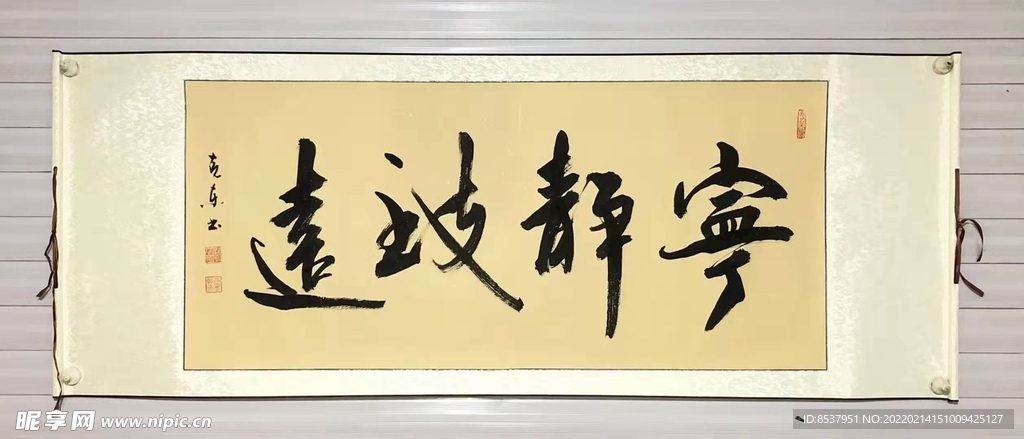 寧靜致遠
克東书
昵享网 www.nipic.cn
ID:8537951 NO:20220214151009425127